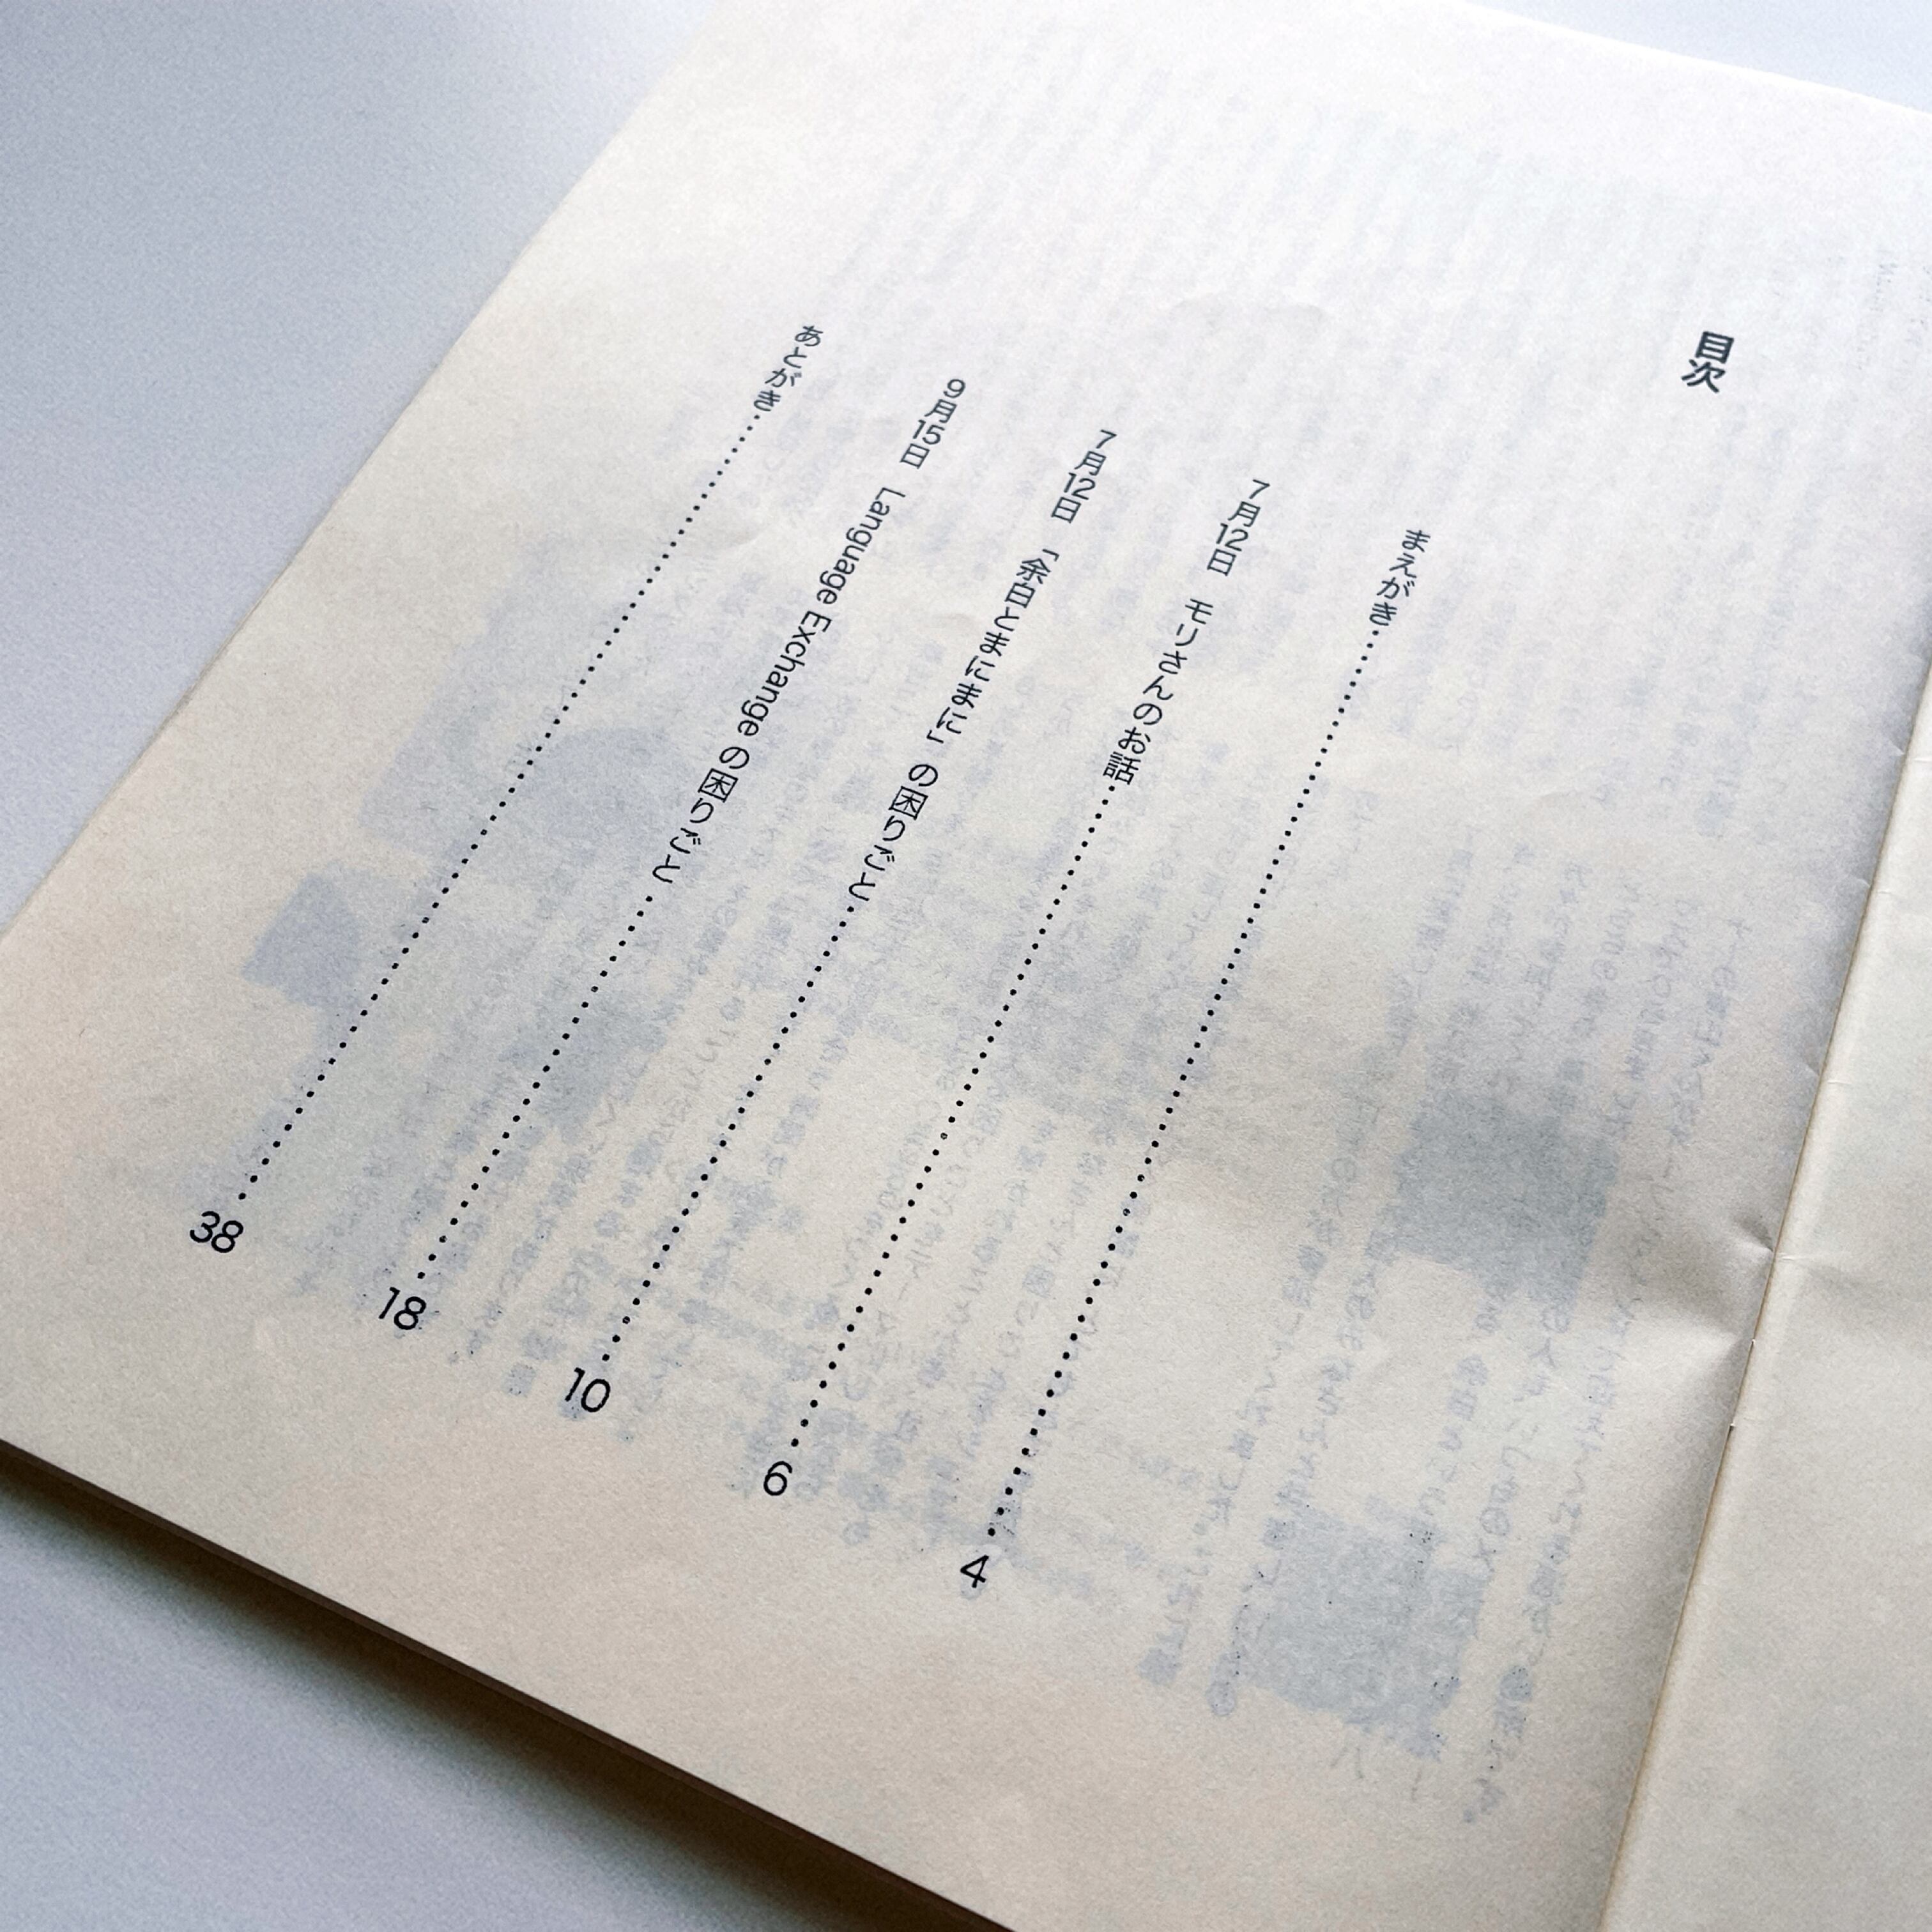 目次
まえがき……………………4
7月12日 モリさんのお話……………………6
7月12日 「余白とまにまに」の困りごと……………………10
9月15日 Language Exchange の困りごと……………………18
あとがき……………………38